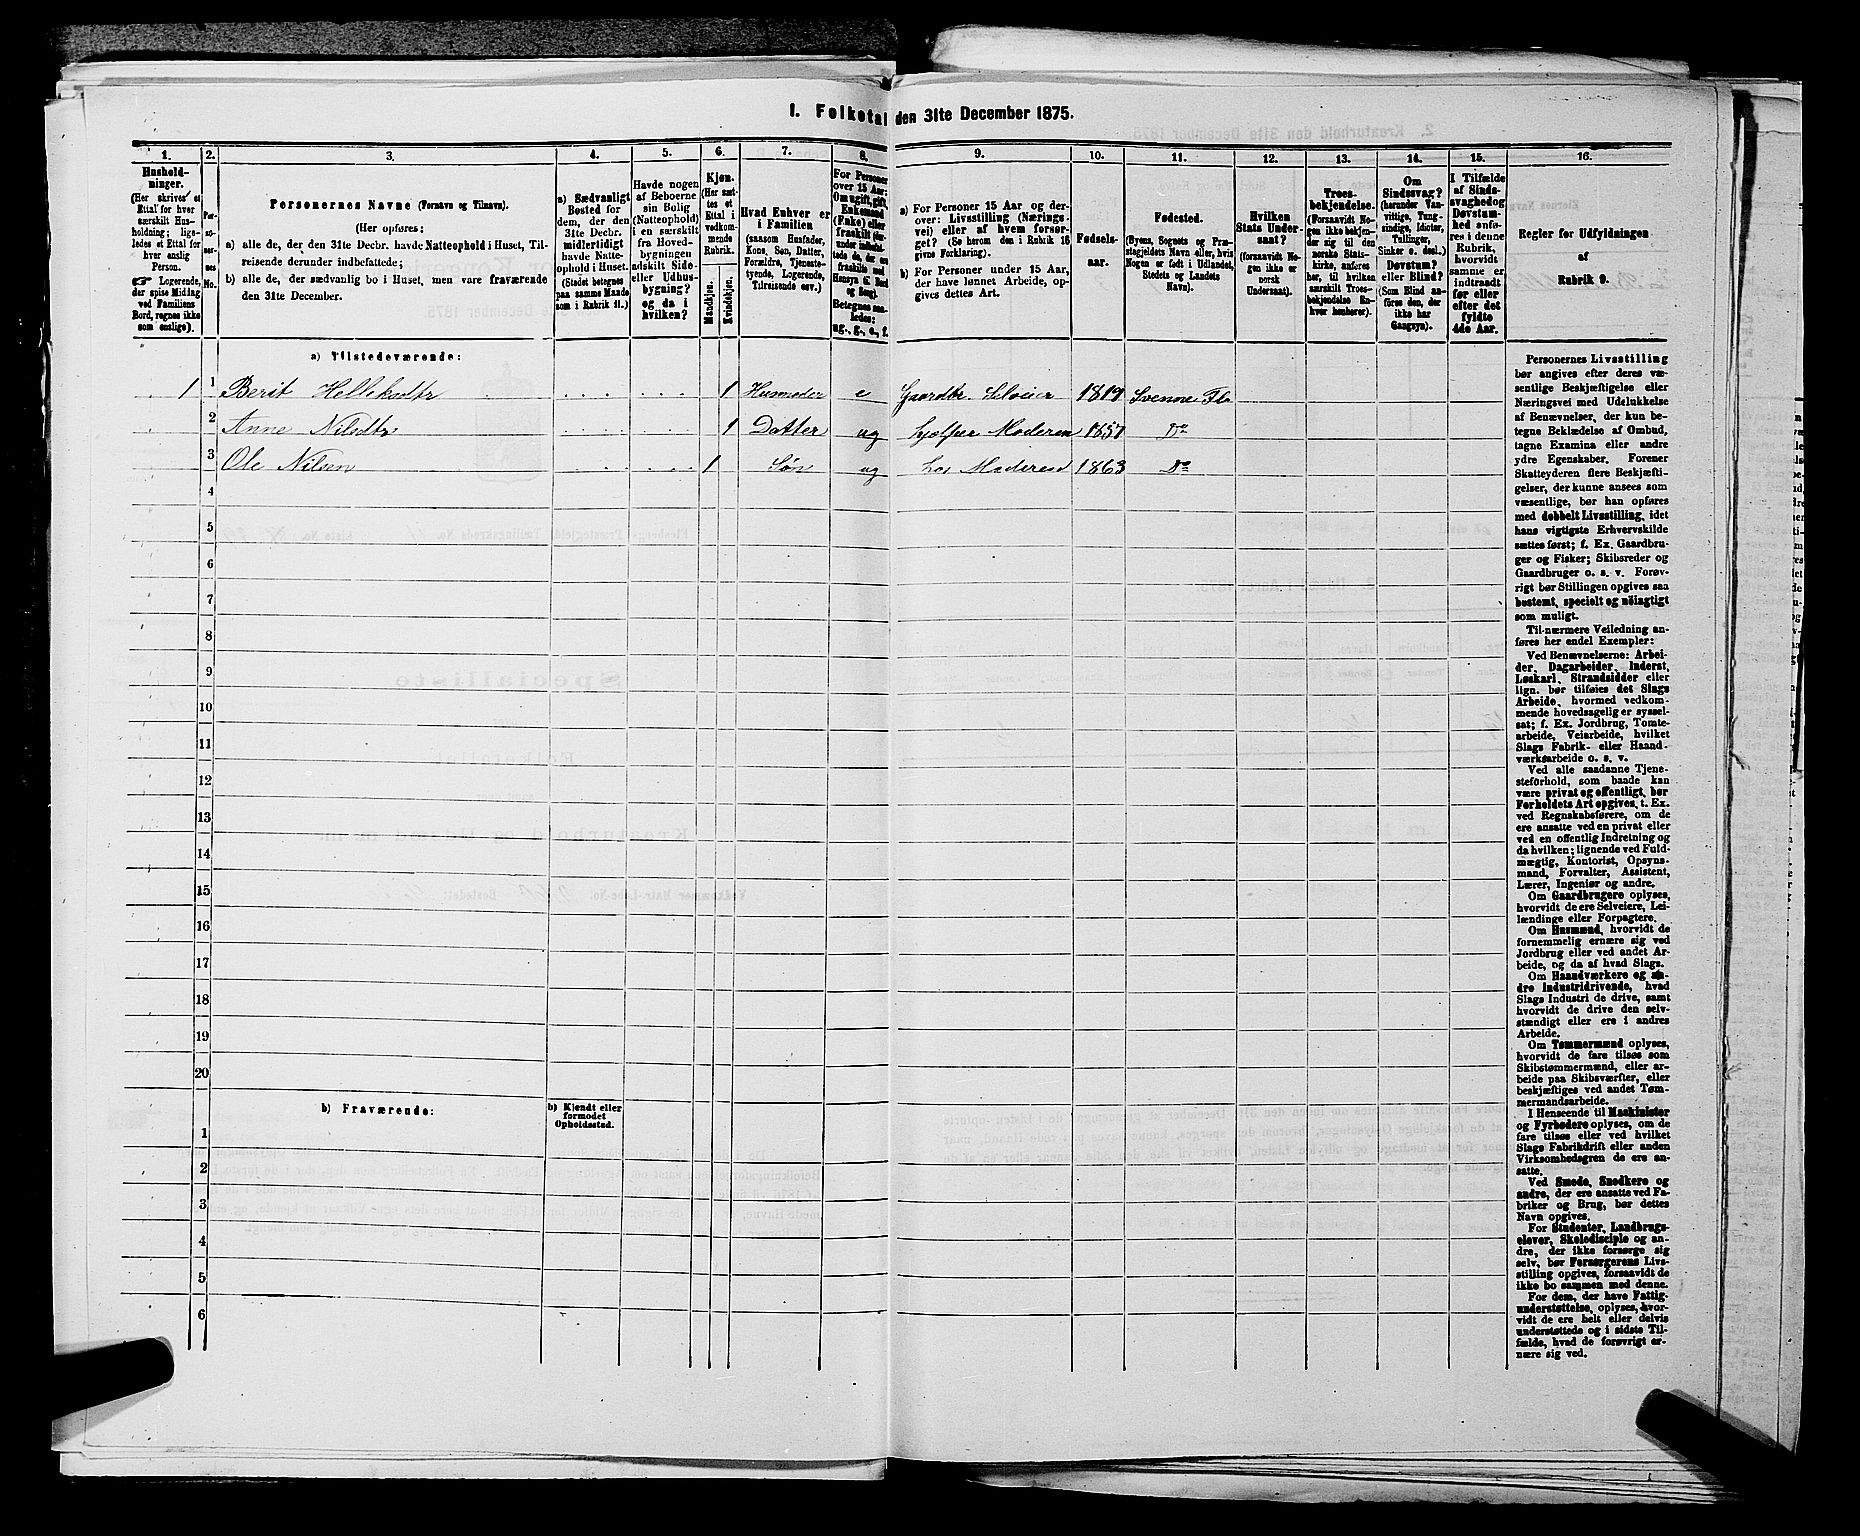 1. Folketal den 31te December 1875.
1.
Husholdninger.
(Her skrives et
Ettal for hver
særskilt Husholdning;
ligeledes et Ettal for
hver enslig
Person.
☞ Logerende,
der spise Middag
ved Familiens
Bord, regnes ikke
som enslige).
2.
Personernes No.
3.
Personernes Navne (Fornavn og Tilnavn).
(Her opføres:
a) alle de, der den 31te Decbr. havde Natteophold i Huset, Tilreisende derunder indbefattede;
b) alle de, der sædvanlig bo i Huset, men vare fraværende
den 31te December.
4.
a) Sædvanligt
Bosted for
dem, der den
31te Decbr.
midlertidigt
havde Natteophold i Huset.
(Stedet betegnes
paa samme Maade
som i Rubrik 11.)
5.
Havde nogen
af Beboerne
sin Bolig
(Natteophold)
i en særskilt
fra Hovedbygningen
adskilt Side-
eller Udhusbygning?
og da i
hvilken?
6.
Kjøn.
(Her sættes et
Ettal i
vedkommende
Rubrik.
Mandkjøn.
Kvindekjøn.
7.
Hvad Enhver er
i Familien
(saasom Husfader,
Kone, Søn, Datter,
Forældre, Tjenestetyende, Logerende,
Tilreisende osv.)
8.
For Personer
over 15 Aar:
Om ugift, gift,
Enkemand
(Enke) eller
fraskilt
Betegnes saaledes:
ug., g., e., f.
9.
a) For Personer 15 Aar og derover: Livsstilling (Næringsvei) eller af hvem forsørget? (Se herom den i Rubrik 16
givne Forklaring).
b) For Personer under 15 Aar,
der have lønnet Arbeide, opgives dettes Art.
10.
Fødselsaar.
11.
Fødested.
(Byens, Sognets og Præstegjeldets Navn eller, hvis
Nogen er født i Udlandet,
Stedets og Landets
Navn).
12.
Hvilken
Stats Undersaat?
(forsaavidt Nogen ikke er
norsk
Undersaat).
13.
Troesbekjendelse.
(Forsaavidt Nogen ikke bekjender sig til den
norske Statskirke, anføres
her, til hvilket
særskilt Troesbekjendelse Enhver henhører).
14.
Om
Sindssvag?
(herunder Vanvittige, Tungsindige, Idioter,
Tullinger,
Sinker o. desl.)
Døvstum?
eller Blind?
(Som Blind anføres den, der
ikke har
Gangsyn).
15.
I Tilfælde
af Sindssvaghed og
Døvstumhed anføres i denne
Rubrik,
hvorvidt
samme er
indtraadt
før eller
efter det
fyldte
4de Aar.
16.
Regler for Udfyldningen
af
Rubrik 9.
a) Tilstedeværende:
1 1 Berit Helleksdtr 1 Husmoder e Gaardbr. Selveier 1819 Svenne Fl
2 Anne Nilsdtr 1 Datter ug hjælper Moderen 1857 Do
3 Ole Nilsen 1 Søn ug hos Moderen 1863 Do
4
5
6
7
8
9
10
11
12
13
14
15
16
17
18
19
20
b) Fraværende:
b) Kjendt eller
formodet
Opholdssted.
1
2
3
4
5
6
Personernes Livsstilling
bør angives efter deres væsentlige Beskjæftigelse eller
Næringsvei med Udelukkelse
af Benævnelser, der kun betegne Beklædelse af Ombud,
tagne Examina eller andre
ydre Egenskaber. Forener
Skatteyderen flere Beskjæftigelser, der kunne ansees som
væsentlige, bør han opføres
med dobbelt Livsstilling, idet
hans vigtigste Erhvervskilde
sættes først; f. Ex. Gaardbruger og Fisker; Skibsreder og
Gaardbruger o. s. v. Forøvrigt bør Stillingen opgives saa
bestemt, specielt og nøiagtigt
som muligt.
Til nærmere Veiledning anføres her endel Exempler:
Ved Benævnelserne: Arbeider, Dagarbeider, Inderst,
Løskarl, Strandsidder eller
lign. bør tilføies det Slags
Arbeide, hvormed vedkommende hovedsagelig er sysselsat; f. Ex. Jordbrug, Tomtearbeide, Veiarbeide, hvilket
Slags Fabrik- eller Haandværksarbeide o. s. v.
Ved alle saadanne Tjenesteforhold, som baade kan
være privat og offentligt, bør
Forholdets Art opgives, t. Ex.
ved Regnskabsførere, om de
ere ansatte ved en privat eller
ved en offentlig Indretning og
da hvilken; lignende ved Fuldmægtig, Kontorist, Opsynsmand, Forvalter, Assistent,
Lærer, Ingeniør og andre.
Om Gaardbrugere oplyses,
hvorvidt de ere Selveiere, Leilændinge eller Forpagtere.
Om Husmænd, hvorvidt de
fornemmelig ernære sig ved
Jordbrug eller ved andet Arbeide, og da af hvad Slags.
Om Haandværkere og andre Industridrivende, hvad
Slags Industri de drive, samt
hvorvidt de drive den selvstændigt eller ere i andres
Arbeide.
Om Tømmermænd oplyses,
hvorvidt de fare tilsøs som
Skibstømmermænd, eller arbeide paa Skibsværfter, eller
beskjæftiges ved andet Tømmermandsarbeide.
I Henseende til Maskinister
og Fyrbødere oplyses, om de
fare tilsøs eller ved hvilket
Slags Fabrikdrift eller anden
Virksomhedsgren de ere ansatte.
Ved Smede, Snedkere og
andre, der ere ansatte ved Fabriker og Brug, bør dettes
Navn opgives.
For Studenter, Landbrugselever, Skoledisciple og andre, der ikke forsørge sig
selv, bør Forsørgerens Livsstilling opgives, forsaavidt de
ikke bo sammen med denne.
For dem, der have Fattigunderstøttelse, oplyses, hvorvidt de ere helt eller delvis
understøttede og i sidste Tilfælde, hvad de forøvrigt ernære sig ved.